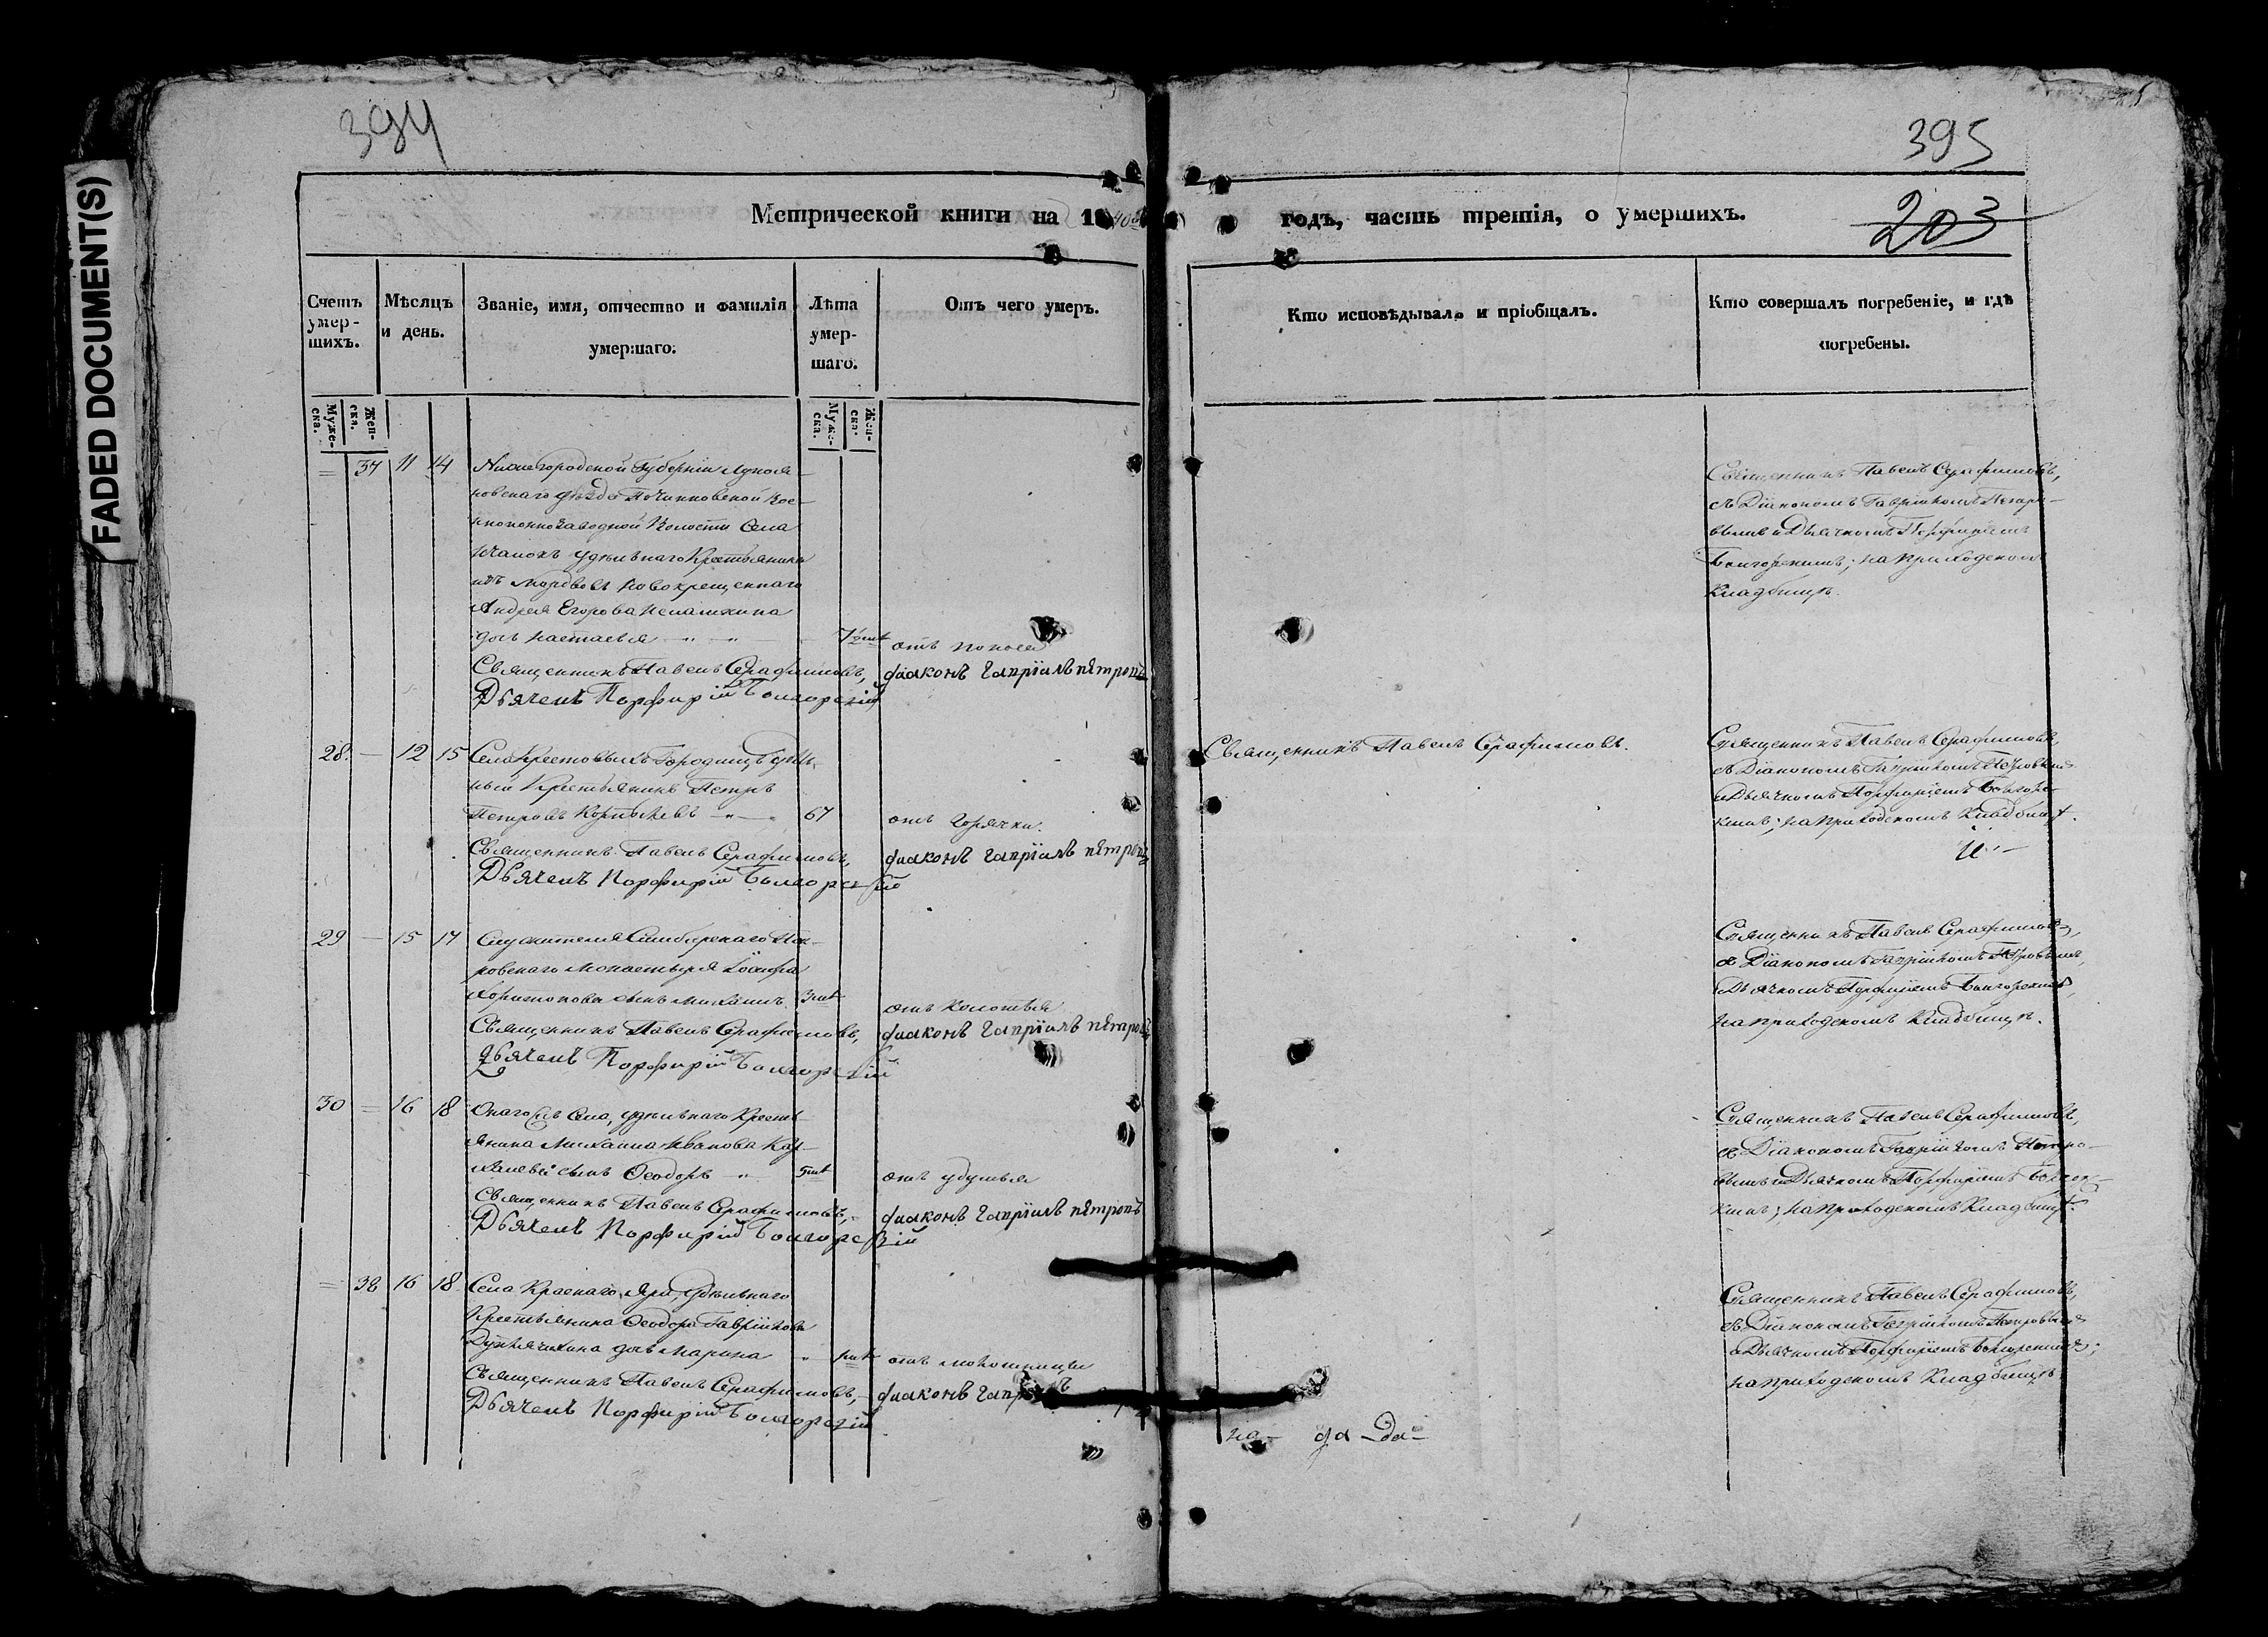 FADED DOCUMENT(S)
394
Метрической книги на 1840й
Счетъ умер-шихъ.
Мѣсяцъ и день.
Званіе, имя, отчество и фамилія умершаго.
Лѣта умер-шаго.
Отъ чего умеръ.
Муже-ска. Жен-ска.
Муже-ска. Жен-ска.
= 37 11 14 Нижегородской Губерніи Лукоя-
новскаго уѣзда Починковской Вое-
Волости Села
удѣльнаго Крестьянина
изъ мордвовъ новокрещеннаго
Андрея Егорова
дочь
отъ поноса
Священникъ Павелъ Серафимовъ, діаконъ Гавріилъ Петровъ
Дьячекъ Порфирій Болгорскій
28. — 12 15 Села Крестовыхъ Городищъ удѣль-
ный Крестьянинъ Петръ
Петровъ 67 отъ горячки.
Священникъ Павелъ Серафимовъ, діаконъ Гавріилъ Петровъ
Дьячекъ Порфирій Болгорскій
29 — 15 17 Служителя Симбирскаго Пок-
ровскаго монастыря Іосифа
Харитонова сынъ Михаилъ 3 отъ колотья
Священникъ Павелъ Серафимовъ, діаконъ Гавріилъ Петровъ
Дьячекъ Порфирій Болгорскій
30 = 16 18 Онаго жъ Села, удѣльнаго Кресть-
янина Михаила Иванова
сынъ Ѳеодоръ 5 отъ удушья
Священникъ Павелъ Серафимовъ, діаконъ Гавріилъ Петровъ
Дьячекъ Порфирій Болгорскій
= 38 16 18 Села Краснаго Яра, удѣльнаго
Крестьянина Ѳеодора Гаврілова
дочь Марина отъ мокотницы
Священникъ Павелъ Серафимовъ, діаконъ
Дьячекъ Порфирій Болгорскій
395
203
годъ, часть третія, о умершихъ.
Кто исповѣдывалъ и пріобщалъ.
Кто совершалъ погребеніе, и гдѣ погребены.
Священникъ Павелъ Серафимовъ,
съ Діакономъ Гавріиломъ Петро-
вымъ и Дьячкомъ Порфиріемъ
Болгорскимъ; на приходскомъ
Кладбищѣ.
Священникъ Павелъ Серафимовъ.
Священникъ Павелъ Серафимовъ,
съ Діакономъ Гавріиломъ Петровымъ
и Дьячкомъ Порфиріемъ Болгорс-
кимъ; на приходскомъ Кладбищѣ.
Священникъ Павелъ Серафимовъ,
съ Діакономъ Гавріиломъ Петровымъ,
Дьячкомъ Порфиріемъ Болгорскимъ,
на приходскомъ Кладбищѣ.
Священникъ Павелъ Серафимовъ,
съ Діакономъ Гавріиломъ Петро-
вымъ и Дьячкомъ Порфиріемъ Болгорс-
кимъ; на приходскомъ Кладбищѣ.
Священникъ Павелъ Серафимовъ,
съ Діакономъ Гавріиломъ Петровымъ
и Дьячкомъ Порфиріемъ Болгорскимъ;
на приходскомъ Кладбищѣ.